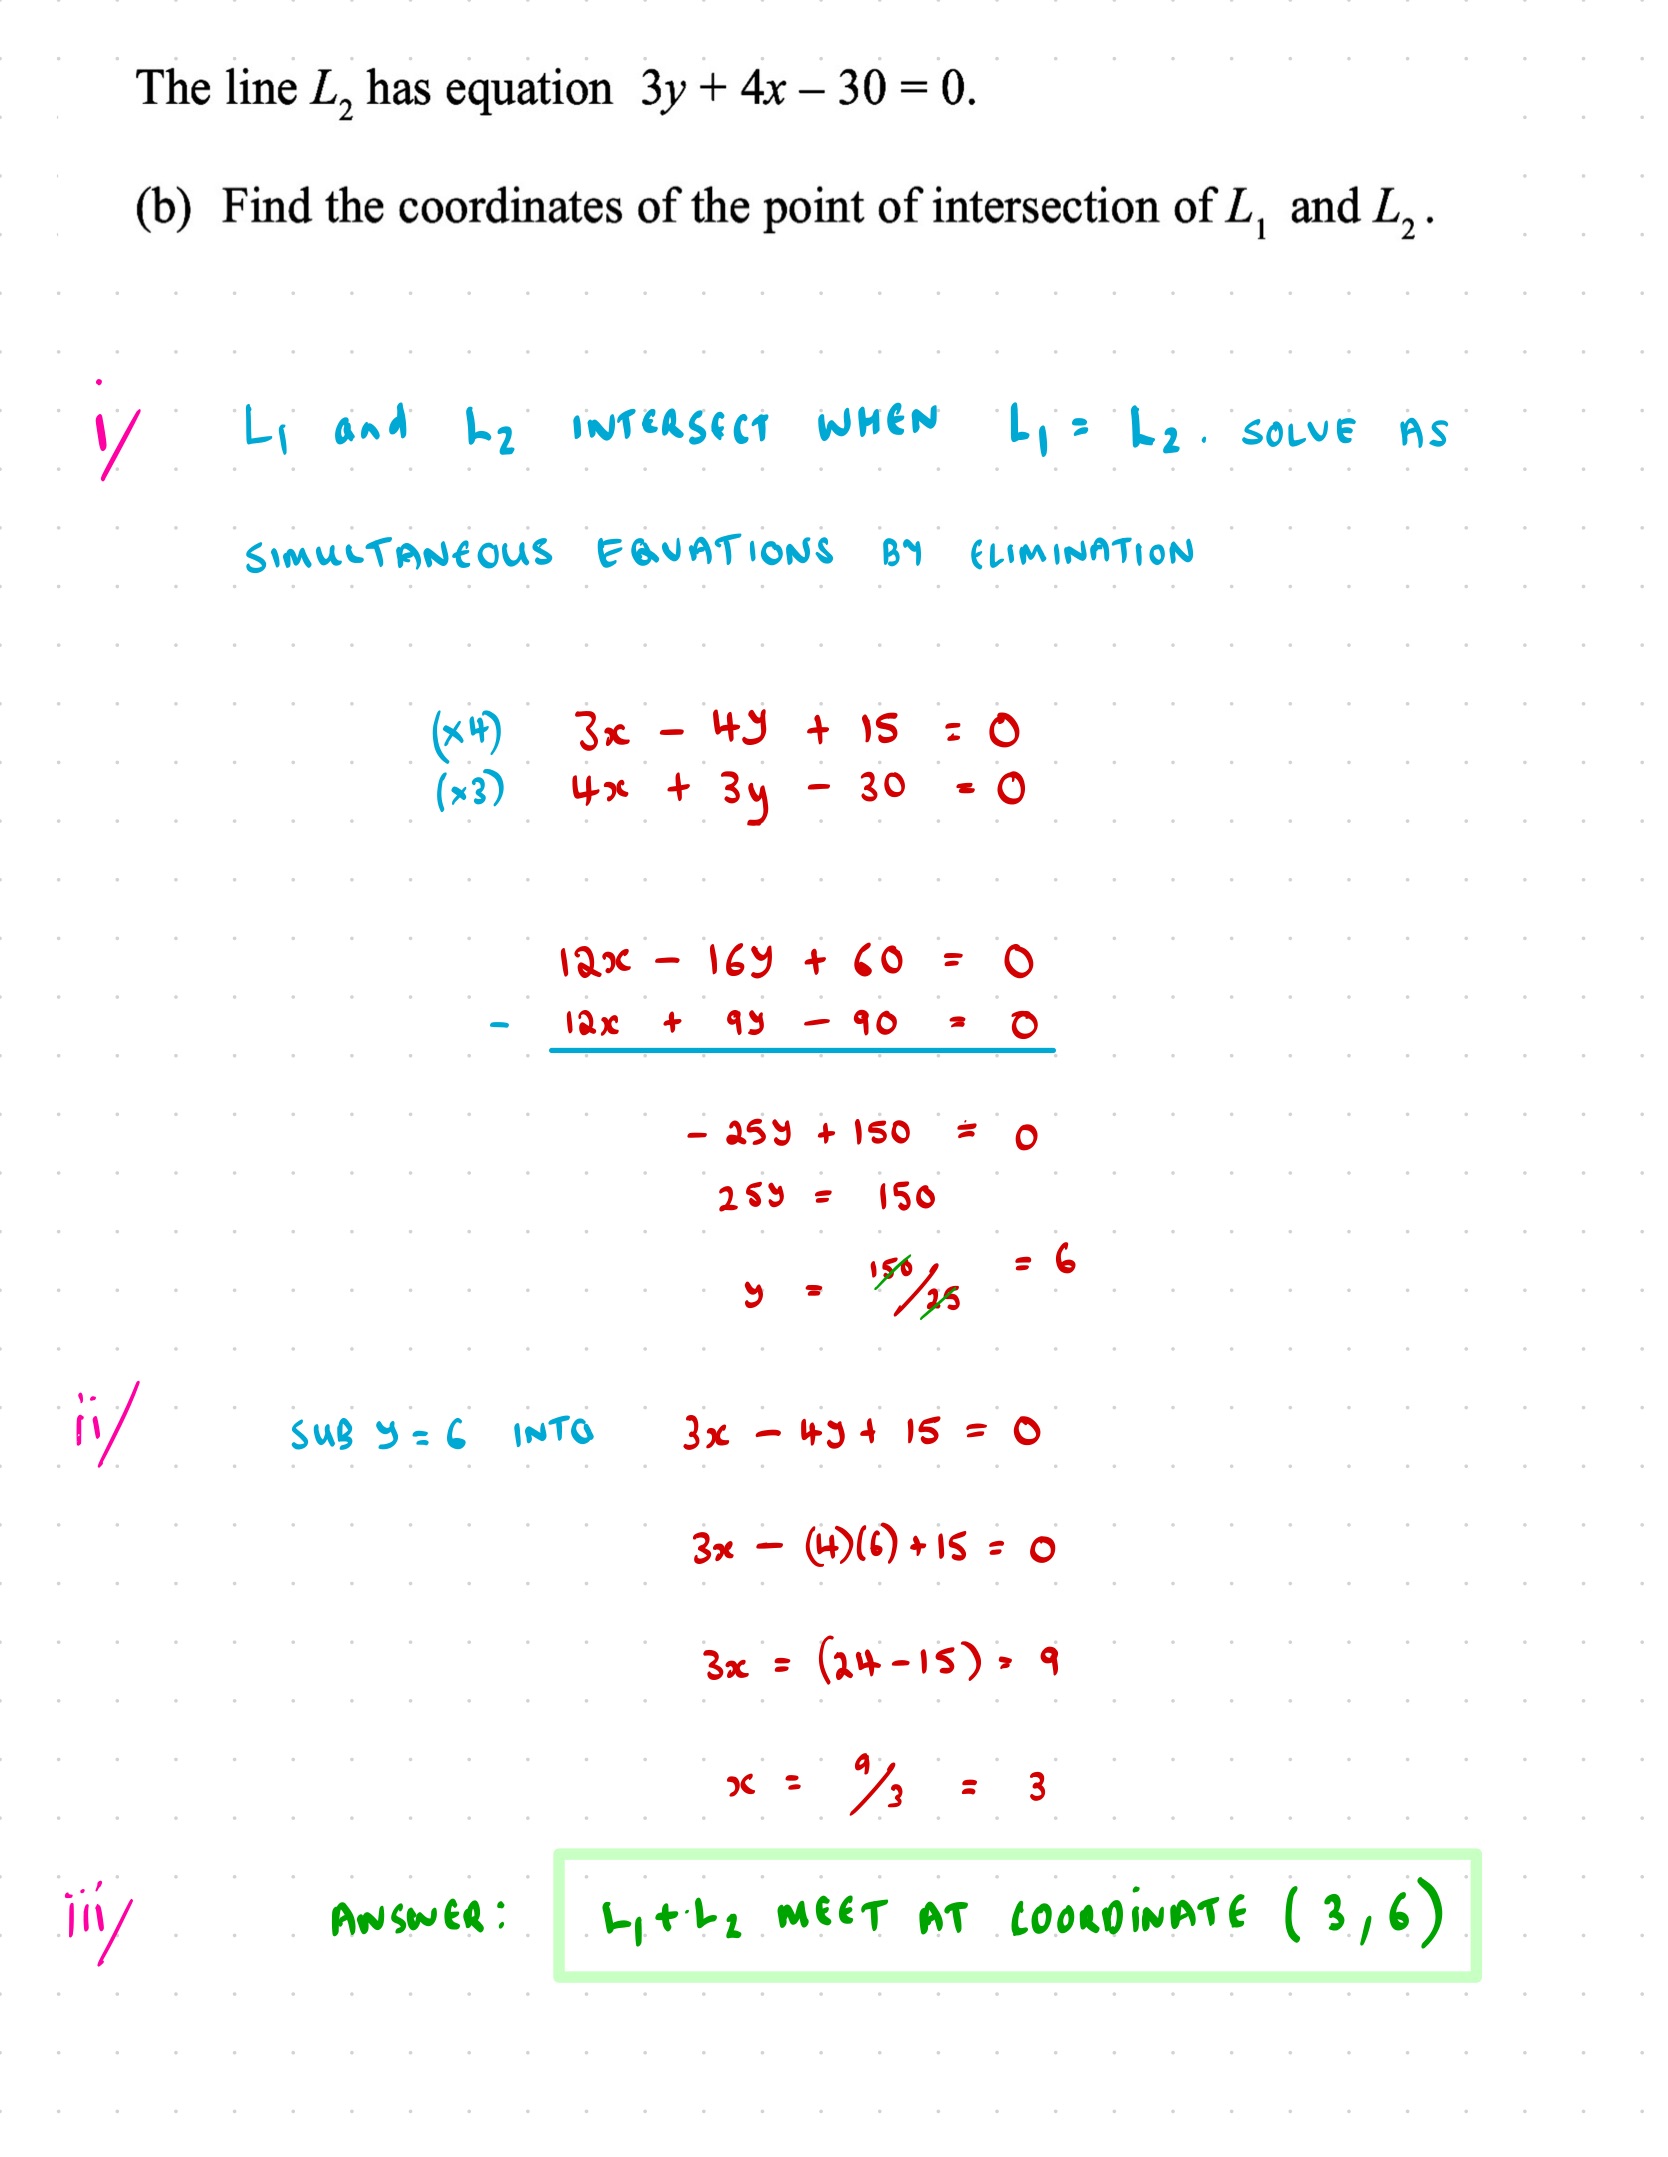 The line L₂ has equation 3y + 4x – 30 = 0.
(b) Find the coordinates of the point of intersection of L₁ and L₂.
i/ L₁ and L₂ INTERSECT WHEN L₁ = L₂. SOLVE AS
SIMULTANEOUS EQUATIONS BY ELIMINATION
(×4) 3x - 4y + 15 = 0
(×3) 4x + 3y - 30 = 0
12x - 16y + 60 = 0
- 12x + 9y - 90 = 0
- 25y + 150 = 0
25y = 150
y = 150/25 = 6
ii/ SUB y = 6 INTO 3x - 4y + 15 = 0
3x - (4)(6) + 15 = 0
3x = (24 - 15) = 9
x = 9/3 = 3
iii/ ANSWER: L₁ + L₂ MEET AT COORDINATE (3, 6)